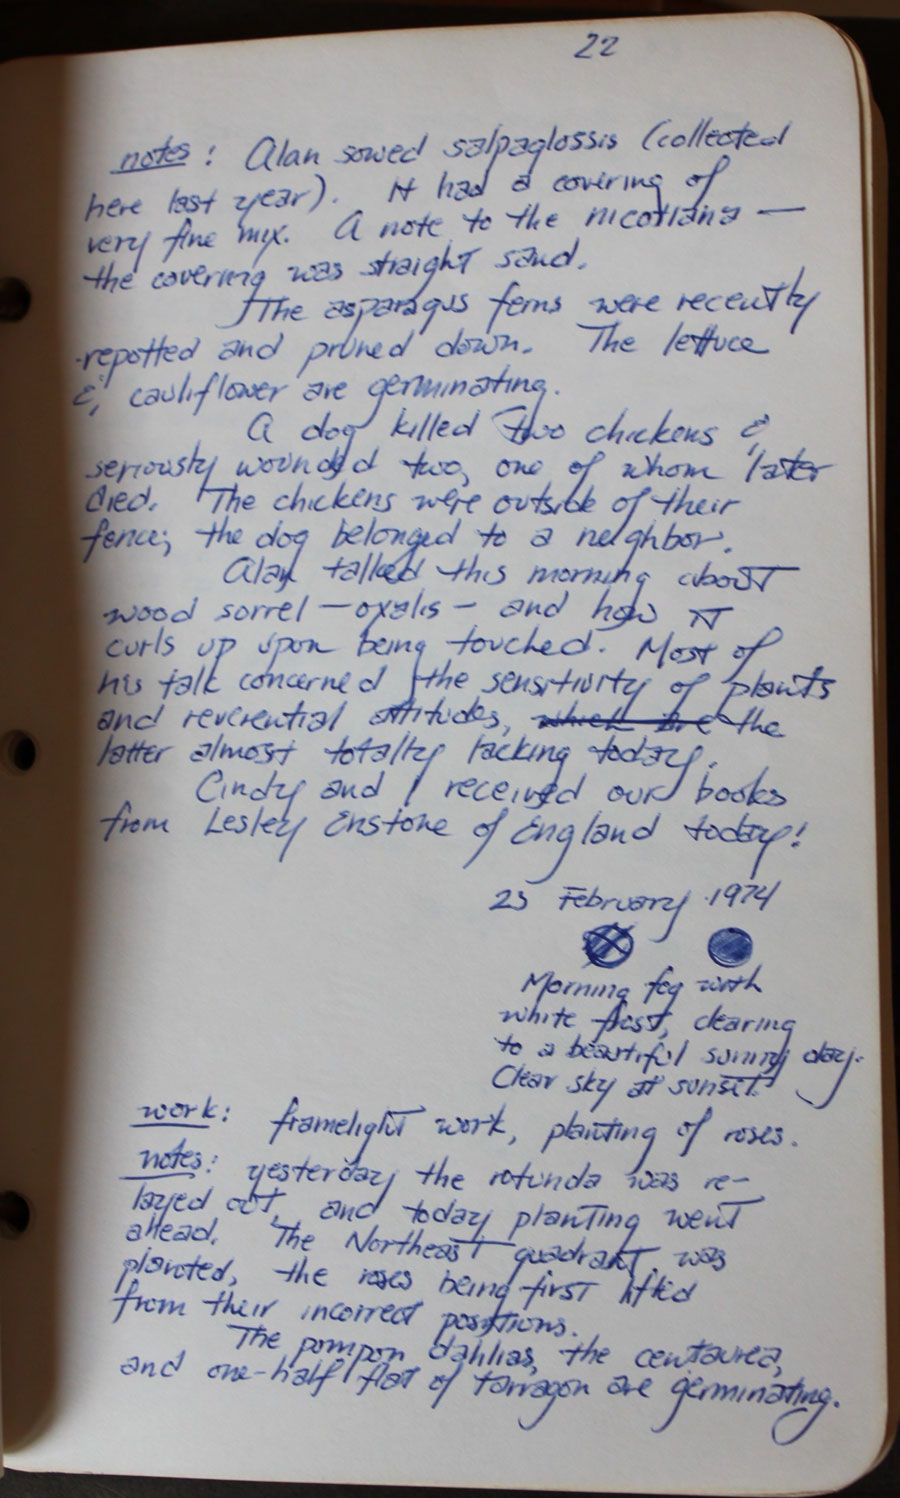 22
notes: Alan sowed salpaglossis (collected
here last year). It had a covering of
very fine mix. A note to the nicotiana —
the covering was straight sand.
The asparagus ferns were recently
repotted and pruned down. The lettuce
&, cauliflower are germinating.
A dog killed two chickens &
seriously wounded two, one of whom later
died. The chickens were outside of their
fence; the dog belonged to a neighbor.
Alan talked this morning about
wood sorrel — oxalis — and how it
curls up upon being touched. Most of
his talk concerned the sensitivity of plants
and reverential attitudes, which are the
latter almost totally lacking today.
Cindy and I received our books
from Lesley Enstone of England today!
23 February 1974
Morning fog with
white frost, clearing
to a beautiful sunny day.
Clear sky at sunset.
work: framelight work, planting of roses.
notes: yesterday the rotunda was re-
layed out, and today planting went
ahead. The Northeast quadrant was
planted, the roses being first lifted
from their incorrect positions.
The pompon dahlias, the centaurea,
and one-half flat of tarragon are germinating.